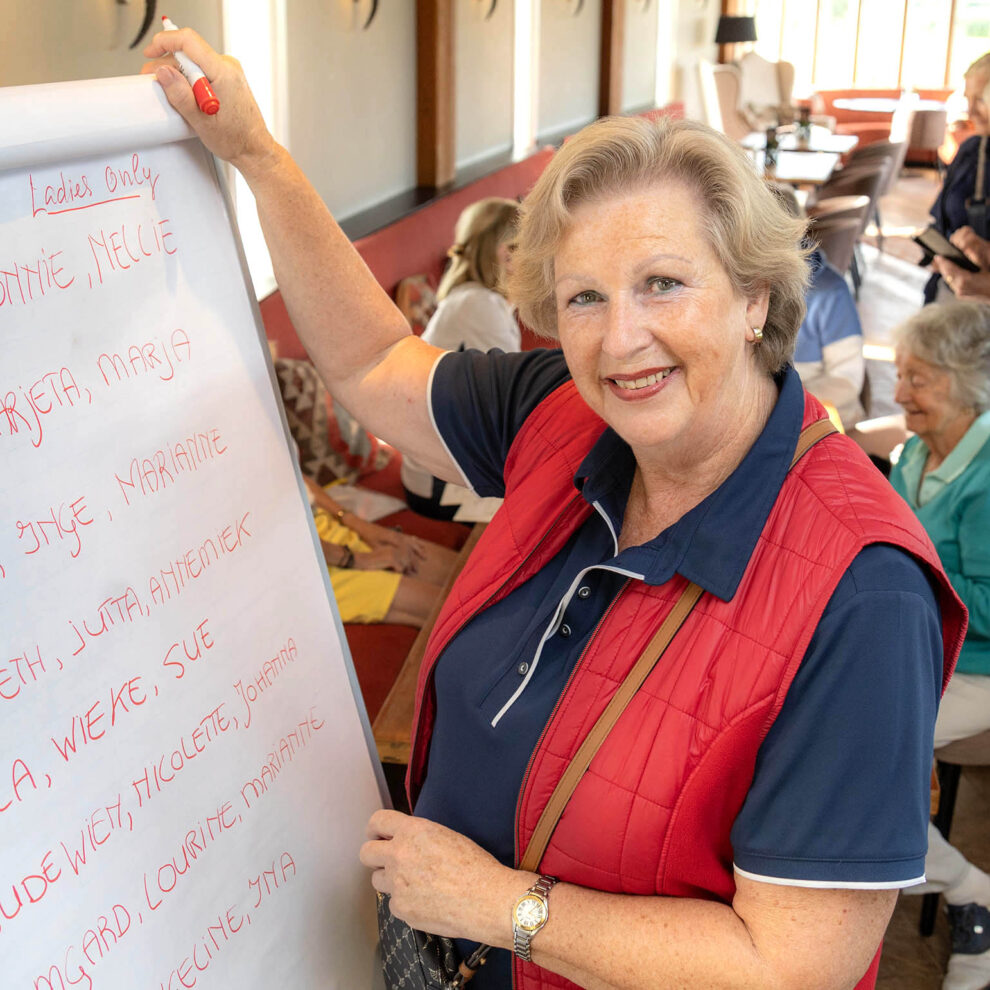 Ladies Only
ONNIE, NELLIE
ARJETA, MARJA
, INGE, MARIANNE
ETH, JUTTA, ANNEMIEK
LA, WIEKE, SUE
UDEWIEN, NICOLETTE, JOHANNA
MGARD, LOURINE, MARIANNE
KELINE, INA